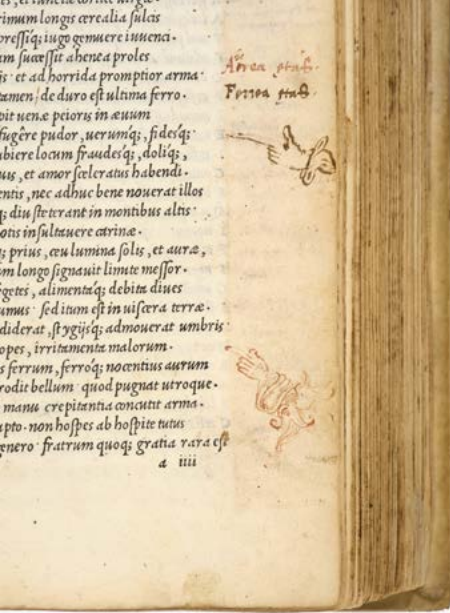 rimum longis cerealia sulcis
pressiq; iugo gemuere iuuenci.
um successit ahenea proles
ijs· et ad horrida promptior arma·
tamen; de duro est ultima ferro·
pit uenæ peioris in æuum
fugêre pudor, uerumq;, fidesq;·
ubiere locum fraudesq;, doliq;,
uis, et amor sceleratus habendi.
entis, nec adhuc bene nouerat illos
q; diu steterant in montibus altis·
otis insultauere carinæ.
q; prius, ceu lumina solis, et auræ,
um longo signauit limite messor.
getes, alimentaq; debita diues
umus· sed itum est in uiscera terræ.
diderat, stygijsq; admouerat umbris
opes, irritamenta malorum.
s ferrum, ferroq; nocentius aurum
rodit bellum· quod pugnat utroque.
manu crepitantia concutit arma.
upto· non hospes ab hospite tutus
genero· fratrum quoq; gratia rara est
a iiii
Aerea etas.
Ferrea etas.